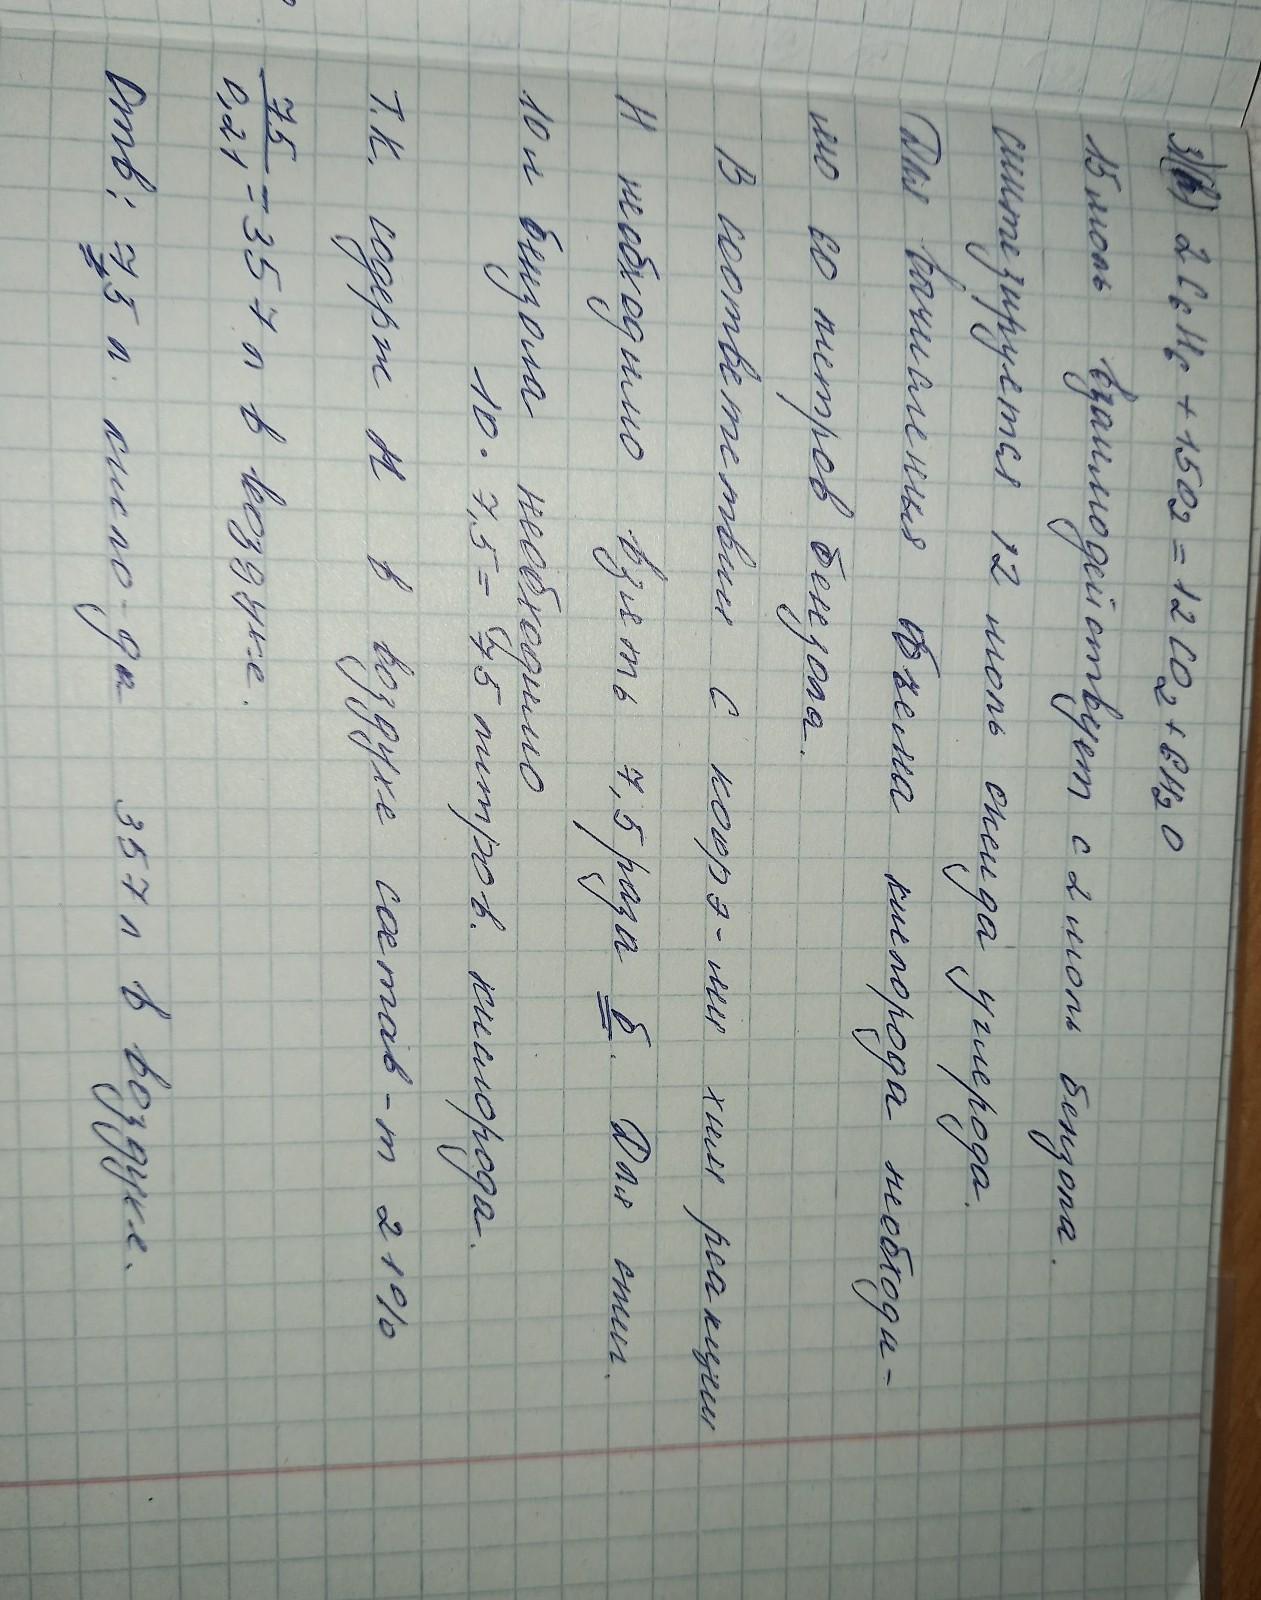 2C6H6 + 15O2 = 12CO2 + 6H2O
15 моль взаимодействуют с 2 моль бензола.
синтезируется 12 моль оксида углерода.
Для вычисления объема кислорода необходи-
мо со литров бензола.
В соответствии с коэрэ-ми хим реакции
Н необходимо взять 7,5 раза б. Для сжиг.
10 л бензола необходимо
10 · 7,5 = 75 литров. кислорода.
Т.К. содерж К в воздухе состав-т 21%
75/0,21 = 357 л в воздухе.
Отв: 75 л. кисло-да 357 л в воздухе.